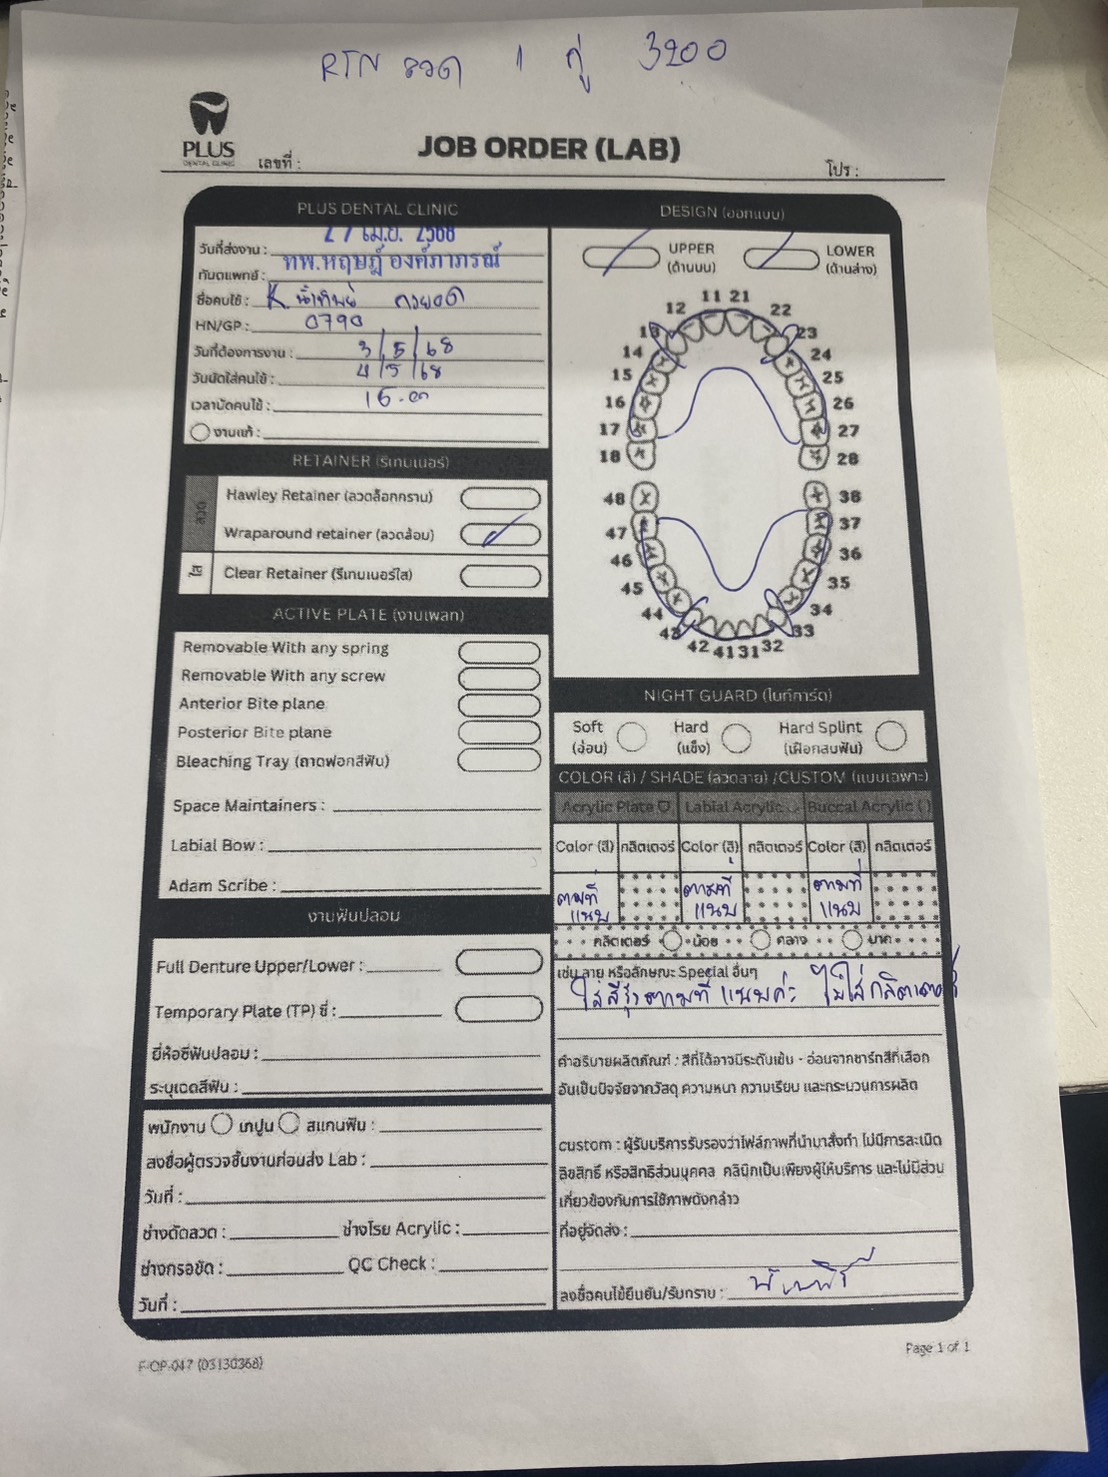 RTN ลวด 1 คู่ 3200
PLUS
DENTAL CLINIC
เลขที่ :
JOB ORDER (LAB)
โปร :
PLUS DENTAL CLINIC
วันที่ส่งงาน : 27 เม.ย. 2568
ทันตแพทย์ : ทพ.หฤษฎ์ องค์ภาภรณ์
ชื่อคนไข้ : K
HN/GP : 0790
วันที่ต้องการงาน : 3/5/68
วันนัดใส่คนไข้ : 4/5/68
เวลานัดคนไข้ :
งานแก้ :
RETAINER (รีเทนเนอร์)
ลวด
Hawley Retainer (ลวดล็อกกราม)
Wraparound retainer (ลวดล้อม)
ใส
Clear Retainer (รีเทนเนอร์ใส)
ACTIVE PLATE (งานเพลท)
Removable With any spring
Removable With any screw
Anterior Bite plane
Posterior Bite plane
Bleaching Tray (ถาดฟอกสีฟัน)
Space Maintainers :
Labial Bow :
Adam Scribe :
งานฟันปลอม
Full Denture Upper/Lower :
Temporary Plate (TP) ซี่ :
ยี่ห้อซี่ฟันปลอม :
ระบุเฉดสีฟัน :
พนักงาน เทปูน สแกนฟัน :
ลงชื่อผู้ตรวจชิ้นงานก่อนส่ง Lab :
วันที่ :
ช่างดัดลวด : ช่างโรย Acrylic :
ช่างกรอขัด : QC Check :
วันที่ :
DESIGN (ออกแบบ)
UPPER
(ด้านบน)
LOWER
(ด้านล่าง)
11 21
12 22
13 23
14 24
15 25
16 26
17 27
18 28
48 38
47 37
46 36
45 35
44 34
43 33
42 41 31 32
NIGHT GUARD (ไนท์การ์ด)
Soft
(อ่อน)
Hard
(แข็ง)
Hard Splint
(เฝือกสบฟัน)
COLOR (สี) / SHADE (ลวดลาย) /CUSTOM (แบบเฉพาะ)
Acrylic Plate Labial Acrylic Buccal Acrylic ( )
Color (สี) กลิตเตอร์ Color (สี) กลิตเตอร์ Color (สี) กลิตเตอร์
ตามที่แนบ ตามที่แนบ ตามที่แนบ
กลิตเตอร์ น้อย กลาง มาก
เช่น ลาย หรือลักษณะ Special อื่นๆ
ใส่สีรุ้งตามที่แนบค่ะ ไม่ใส่กลิตเตอร์
คำอธิบายผลิตภัณฑ์ : สีที่ได้อาจมีระดับเข้ม - อ่อนจากชาร์ทสีที่เลือก
อันเป็นปัจจัยจากวัสดุ ความหนา ความเรียบ และกระบวนการผลิต
custom : ผู้รับบริการรับรองว่าไฟล์ภาพที่นำมาสั่งทำ ไม่มีการละเมิด
ลิขสิทธิ์ หรือสิทธิส่วนบุคคล คลินิกเป็นเพียงผู้ให้บริการ และไม่มีส่วน
เกี่ยวข้องกับการใช้ภาพดังกล่าว
ที่อยู่จัดส่ง :
ลงชื่อคนไข้ยืนยัน/รับทราบ :
F-OP-047 (03130368)
Page 1 of 1